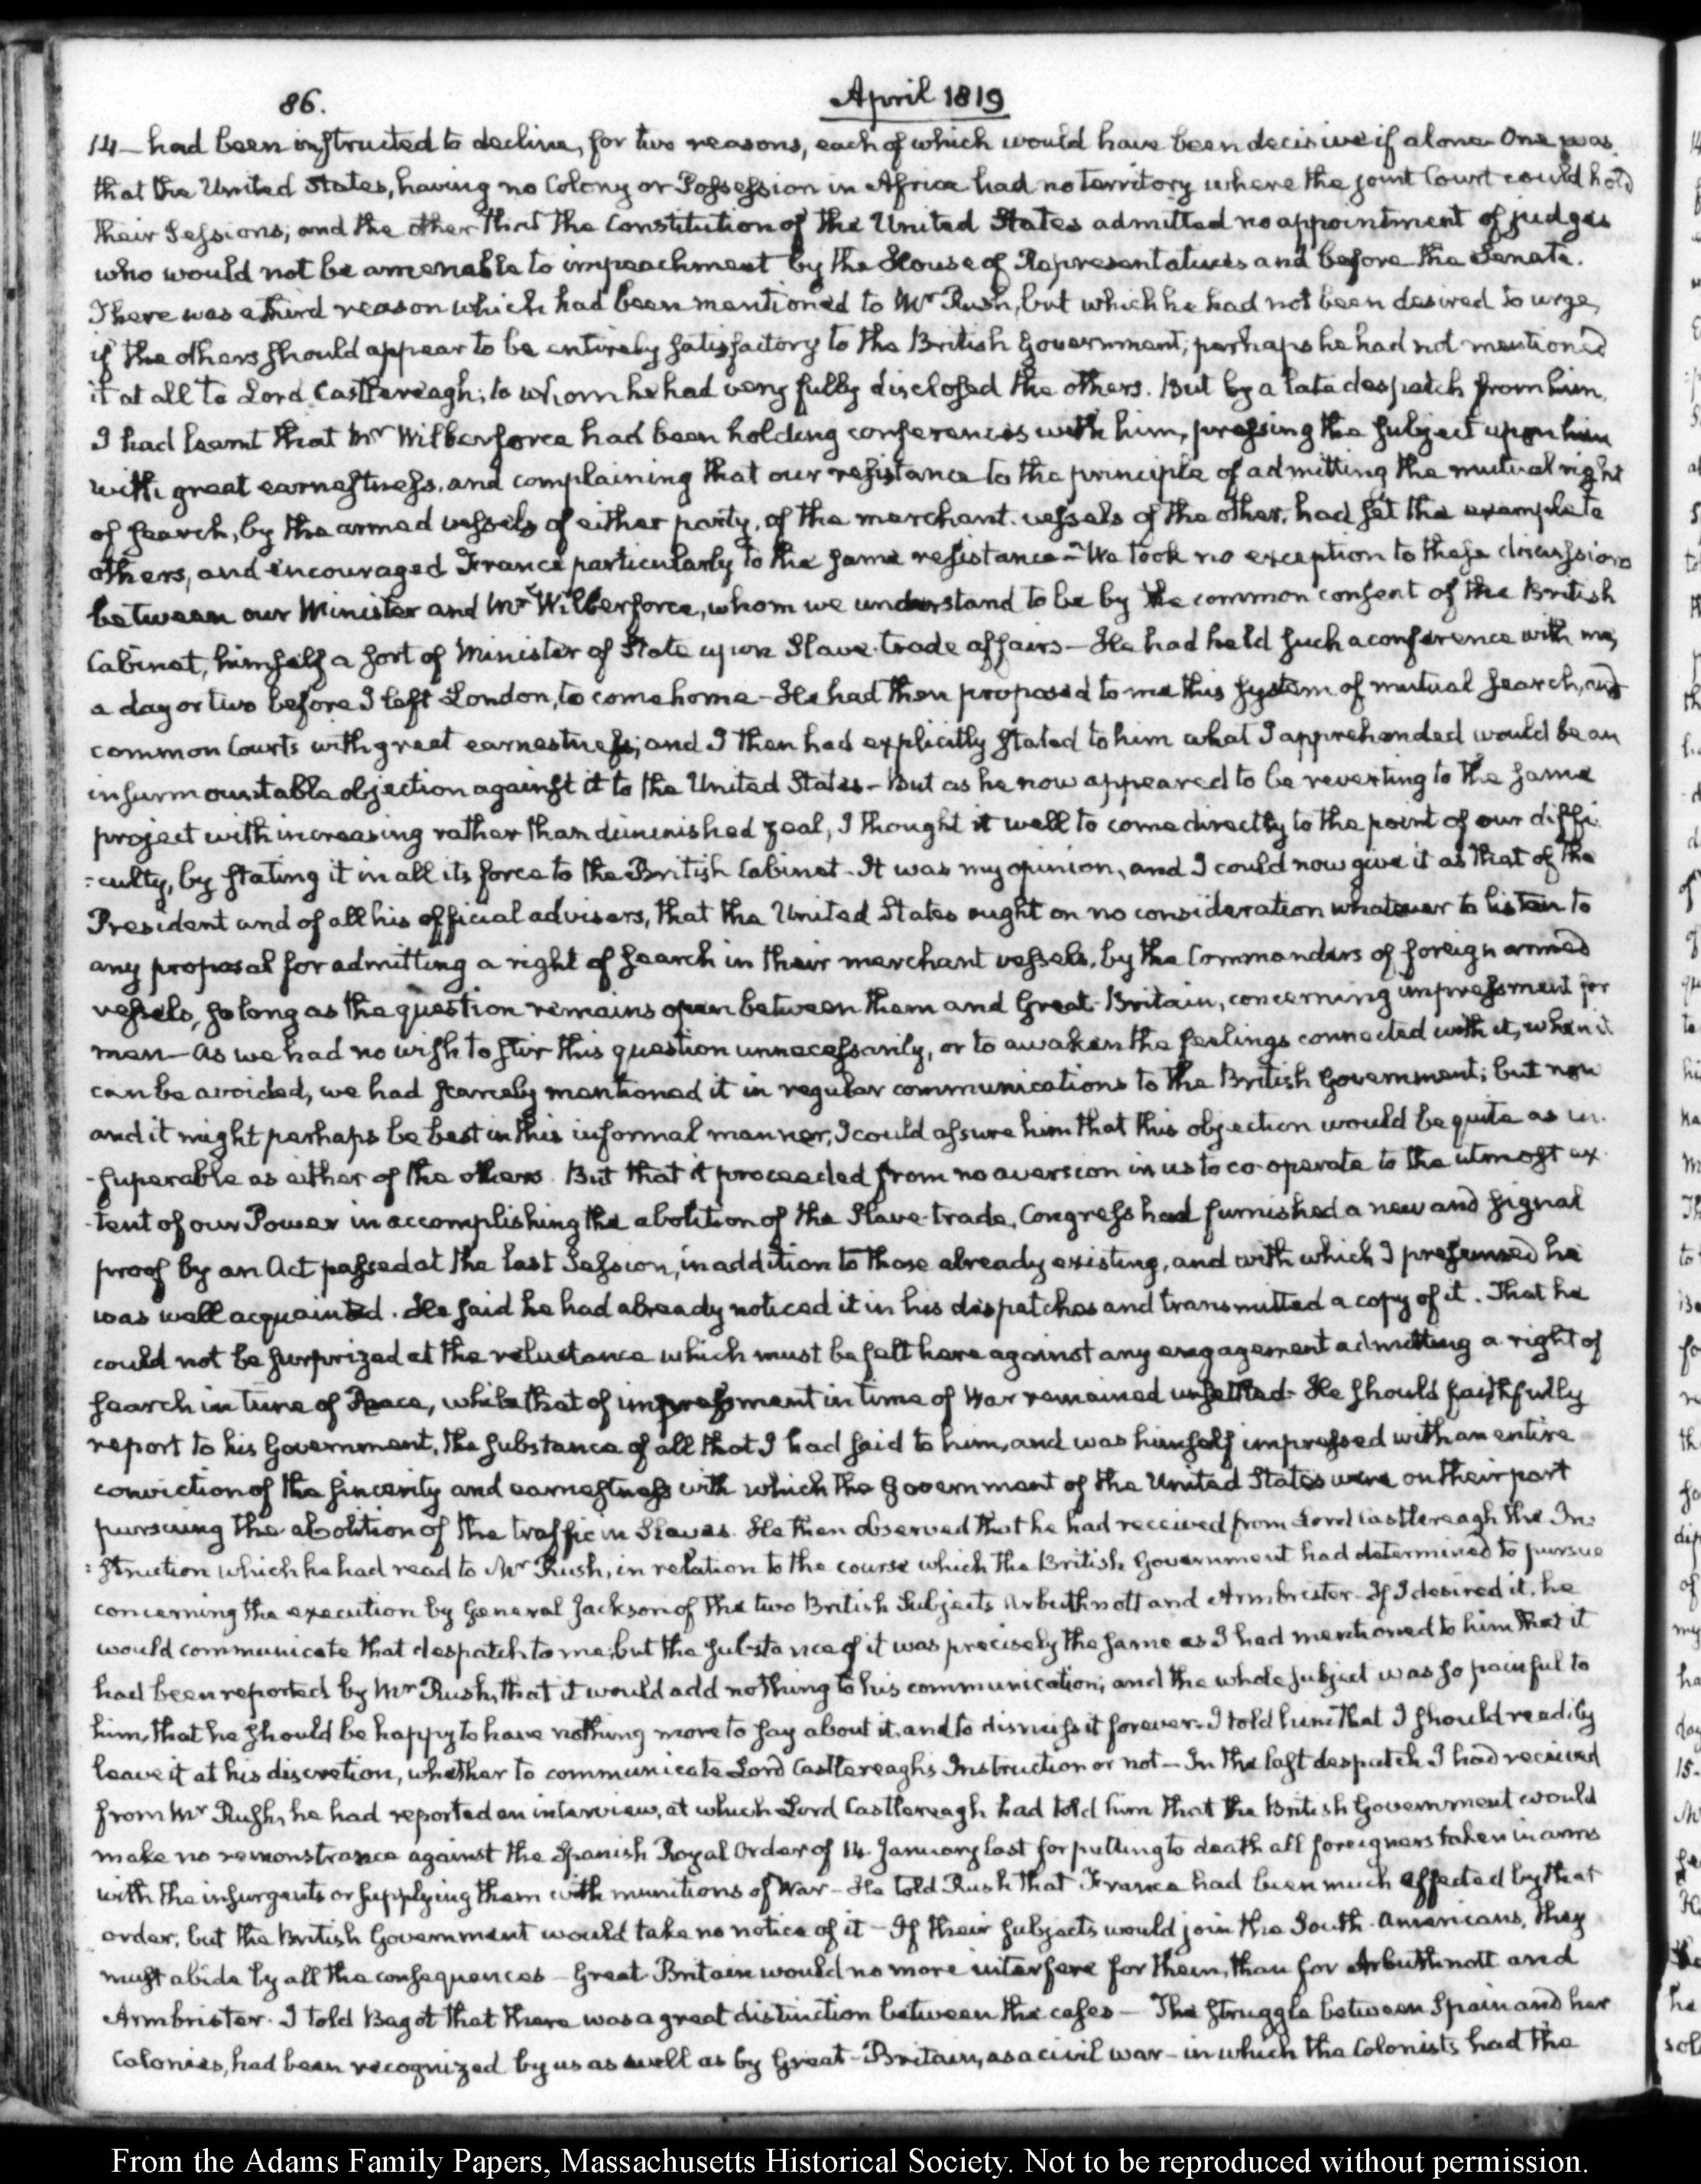 86.
April 1819
14 — had been instructed to decline, for two reasons, each of which would have been decisive if alone — One was
that the United States, having no Colony or Possession in Africa had no territory where the joint Court could hold
their Sessions; and the other that the Constitution of the United States admitted no appointment of judges
who would not be amenable to impeachment by the House of Representatives and before the Senate.
There was a third reason which had been mentioned to Mr Rush, but which he had not been desired to urge,
if the others should appear to be entirely satisfactory to the British Government; perhaps he had not mentioned
it at all to Lord Castlereagh; to whom he had very fully disclosed the others. But by a late despatch from him,
I had learnt that Mr Wilberforce had been holding conferences with him, pressing the subject upon him
with great earnestness, and complaining that our resistance to the principle of admitting the mutual right
of search, by the armed vessels of either party, of the merchant vessels of the other, had set the example to
others, and encouraged France particularly to the same resistance — We took no exception to these discussions
between our Minister and Mr Wilberforce, whom we understand to be by the common consent of the British
Cabinet, himself a sort of Minister of State upon Slave-trade affairs — He had held such a conference with me,
a day or two before I left London, to come home — He had then proposed to me this system of mutual search, and
common Courts with great earnestness; and I then had explicitly stated to him what I apprehended would be an
insurmountable objection against it to the United States — But as he now appeared to be reverting to the same
project with increasing rather than diminished zeal, I thought it well to come directly to the point of our diffi-
:culty, by stating it in all its force to the British Cabinet — It was my opinion, and I could now give it as that of the
President and of all his official advisers, that the United States ought on no consideration whatever to listen to
any proposal for admitting a right of search in their merchant vessels, by the Commanders of foreign armed
vessels, so long as the question remains open between them and Great-Britain, concerning impressment for
men — As we had no wish to stir this question unnecessarily, or to awaken the feelings connected with it, when it
can be avoided, we had scarcely mentioned it in regular communications to the British Government; but now
and it might perhaps be best in this informal manner, I could assure him that this objection would be quite as in-
-superable as either of the others. But that it proceeded from no aversion in us to co-operate to the utmost ex-
-tent of our Power in accomplishing the abolition of the Slave-trade, Congress had furnished a new and signal
proof by an Act passed at the last Session, in addition to those already existing, and with which I presumed he
was well acquainted. He said he had already noticed it in his despatches and transmitted a copy of it. That he
could not be surprized at the reluctance which must be felt here against any engagement admitting a right of
search in time of Peace, while that of impressment in time of War remained unsettled — He should faithfully
report to his Government, the substance of all that I had said to him, and was himself impressed with an entire
conviction of the sincerity and earnestness with which the Government of the United States were on their part
pursuing the abolition of the traffic in Slaves. He then observed that he had received from Lord Castlereagh the In:
:struction which he had read to Mr Rush, in relation to the course which the British Government had determined to pursue
concerning the execution by General Jackson of the two British Subjects Arbuthnott and Armbrister — If I desired it, he
would communicate that despatch to me; but the substance of it was precisely the same as I had mentioned to him that it
had been reported by Mr Rush, that it would add nothing to his communication; and the whole subject was so painful to
him, that he should be happy to have nothing more to say about it, and to dismiss it forever. I told him that I should readily
leave it at his discretion, whether to communicate Lord Castlereagh's Instruction or not — In the last despatch I had received
from Mr Rush, he had reported an interview, at which Lord Castlereagh had told him that the British Government would
make no remonstrance against the Spanish Royal Order of 14. January last for putting to death all foreigners taken in arms
with the insurgents or supplying them with munitions of War — He told Rush that France had been much affected by that
order, but the British Government would take no notice of it — If their subjects would join the South-Americans, they
must abide by all the consequences — Great-Britain would no more interfere for them, than for Arbuthnott and
Armbrister. I told Bagot that there was a great distinction between the cases — The struggle between Spain and her
Colonies, had been recognized by us as well as by Great-Britain, as a civil war — in which the Colonists had the
From the Adams Family Papers, Massachusetts Historical Society. Not to be reproduced without permission.